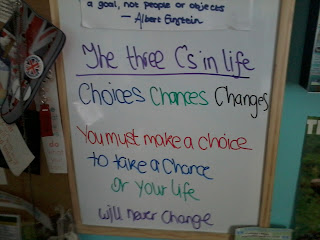 a goal, not people or objects
— Albert Einstein
The three C's in life
Choices Chances Changes
You must make a choice
to take a Chance
Or Your life
will never Change